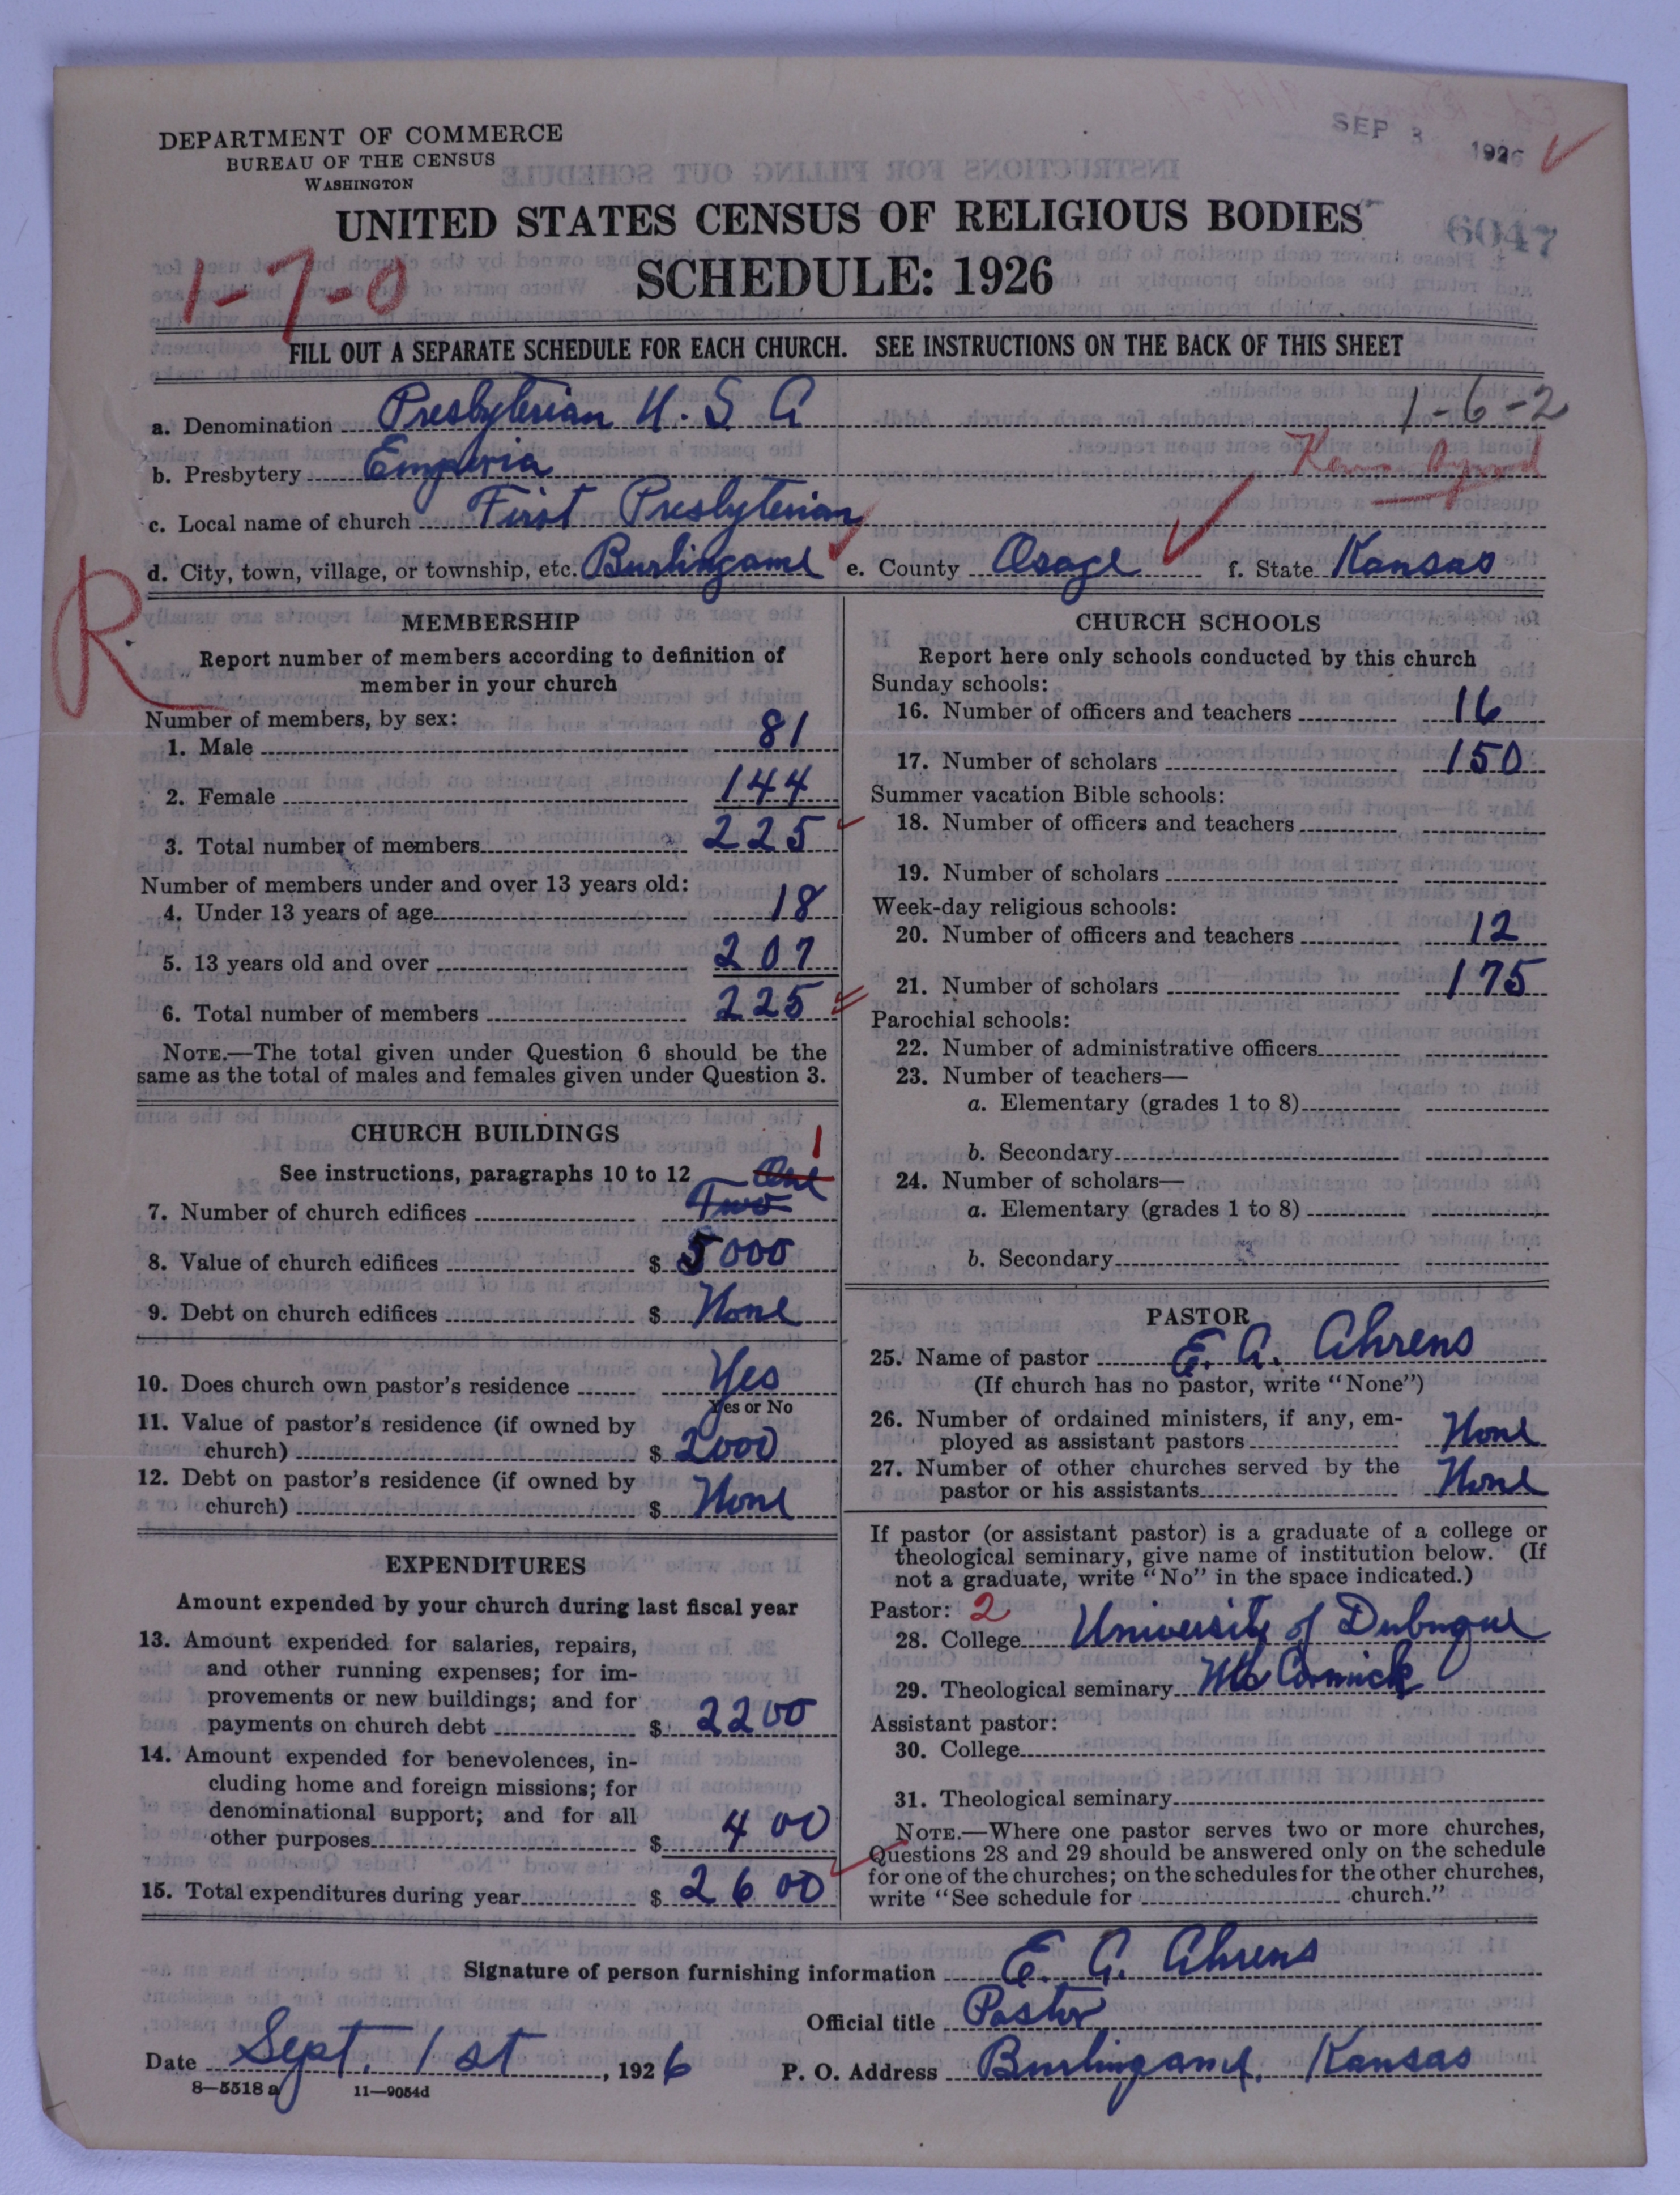 SEP 3 1926
DEPARTMENT OF COMMERCE
BUREAU OF THE CENSUS
WASHINGTON
UNITED STATES CENSUS OF RELIGIOUS BODIES
6047
SCHEDULE: 1926
1-7-0
FILL OUT A SEPARATE SCHEDULE FOR EACH CHURCH. SEE INSTRUCTIONS ON THE BACK OF THIS SHEET
1-6-2
a. Denomination Presbyterian U. S A
b. Presbytery Emporia
c. Local name of church First Presbyterian
d. City, town, village, or township, etc. Burlingame e. County Osage f. State Kansas
R
MEMBERSHIP
Report number of members according to definition of
member in your church
Number of members, by sex:
1. Male 81
2. Female 144
3. Total number of members 225
Number of members under and over 13 years old:
4. Under 13 years of age 18
5. 13 years old and over 207
6. Total number of members 225
NOTE.—The total given under Question 6 should be the
same as the total of males and females given under Question 3.
CHURCH BUILDINGS
See instructions, paragraphs 10 to 12
1
One
7. Number of church edifices Two
8. Value of church edifices $ 5000
9. Debt on church edifices $ None
10. Does church own pastor's residence Yes
Yes or No
11. Value of pastor's residence (if owned by
church) $ 2000
12. Debt on pastor's residence (if owned by
church) $ None
EXPENDITURES
Amount expended by your church during last fiscal year
13. Amount expended for salaries, repairs,
and other running expenses; for im-
provements or new buildings; and for
payments on church debt $ 2200
14. Amount expended for benevolences, in-
cluding home and foreign missions; for
denominational support; and for all
other purposes $ 400
15. Total expenditures during year $ 2600
CHURCH SCHOOLS
Report here only schools conducted by this church
Sunday schools:
16. Number of officers and teachers 16
17. Number of scholars 150
Summer vacation Bible schools:
18. Number of officers and teachers
19. Number of scholars
Week-day religious schools:
20. Number of officers and teachers 12
21. Number of scholars 175
Parochial schools:
22. Number of administrative officers
23. Number of teachers—
a. Elementary (grades 1 to 8)
b. Secondary
24. Number of scholars—
a. Elementary (grades 1 to 8)
b. Secondary
PASTOR
25. Name of pastor E. A. Ahrens
(If church has no pastor, write "None")
26. Number of ordained ministers, if any, em-
ployed as assistant pastors None
27. Number of other churches served by the
pastor or his assistants None
If pastor (or assistant pastor) is a graduate of a college or
theological seminary, give name of institution below. (If
not a graduate, write "No" in the space indicated.)
Pastor: 2
28. College University of Dubuque
29. Theological seminary McCormick
Assistant pastor:
30. College
31. Theological seminary
NOTE.—Where one pastor serves two or more churches,
Questions 28 and 29 should be answered only on the schedule
for one of the churches; on the schedules for the other churches,
write "See schedule for church."
Signature of person furnishing information E. A. Ahrens
Official title Pastor
Date Sept. 1st, 1926 P. O. Address Burlingame, Kansas
8—5518 a 11—9054d